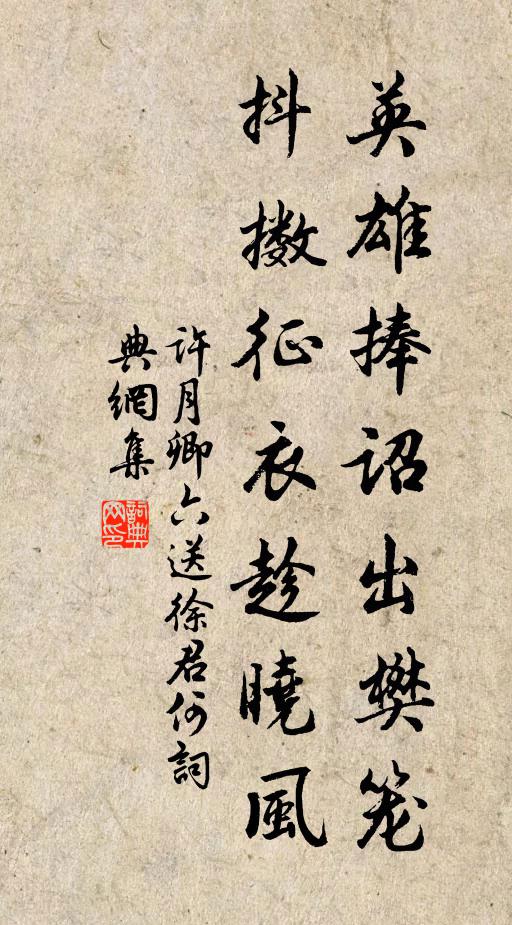 英雄捧诏出樊笼
抖擞征衣趁曉風
许月卿六送徐君何詞
典網集
詞典
网印